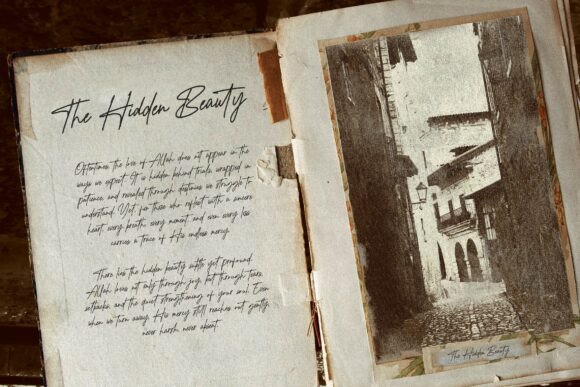 The Hidden Beauty
Oftentimes the love of Allah does not appear in the
ways we expect. It is hidden behind trials, wrapped in
patience, and revealed through destinies we struggle to
understand. Yet, for those who reflect with a sincere
heart, every breath, every moment, and even every loss
carries a trace of His endless mercy.
There lies the hidden beauty subtle yet profound.
Allah loves not only through joy, but through tears,
setbacks, and the quiet strengthening of your soul. Even
when we turn away, His mercy still reaches out gently,
never harsh, never absent.
The Hidden Beauty